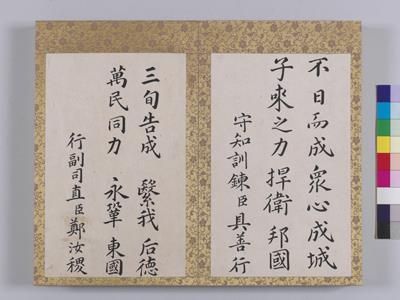 不日而成 衆心成城
子來之力 捍衛邦國
守知訓鍊臣具善行
三旬告成 繄我 后德
萬民同力 永鞏 東國
行副司直臣鄭汝稷